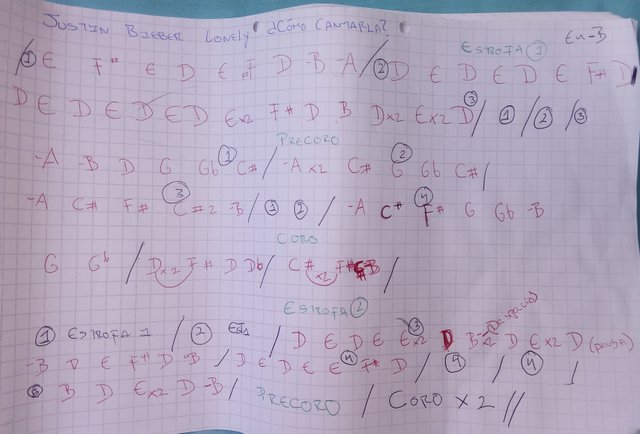 JUSTIN BIEBER LONELY ¿CÓMO CANTARLA?
ESTROFA ① En-B
/① E F# E D E F# D -B -A / ② D E D E D E F# D
D E D E D E D Ex2 F# D B Dx2 Ex2 D ③ / ① / ② / ③
PRECORO
-A -B D G Gb ① C# / -A x2 C# ② G Gb C# /
-A C# F# ③ C#2 -B / ① ② / -A C# ④ F# G Gb -B
CORO
G Gb / Dx2 F# D Db / C# x2 F# B /
ESTROFA ②
① ESTROFA 1 / ② / D E D E Ex2 ③ D B-2 (Despacio) D Ex2 D (pausa)
-B D E F# D -B / D E D E ④ F# D / ④ / ④ /
B D Ex2 D -B / PRECORO / CORO x 2 //